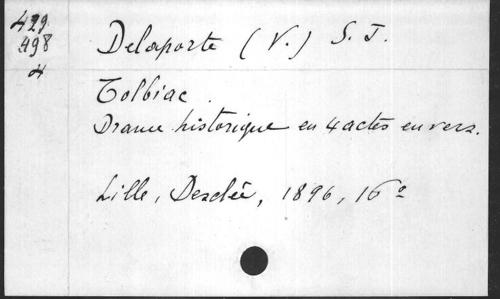 429.
498
4
Delaporte (V.) S. J.
Tolbiac.
Drame historique en 4 actes en vers.
Lille, Desclée, 1896, 16º